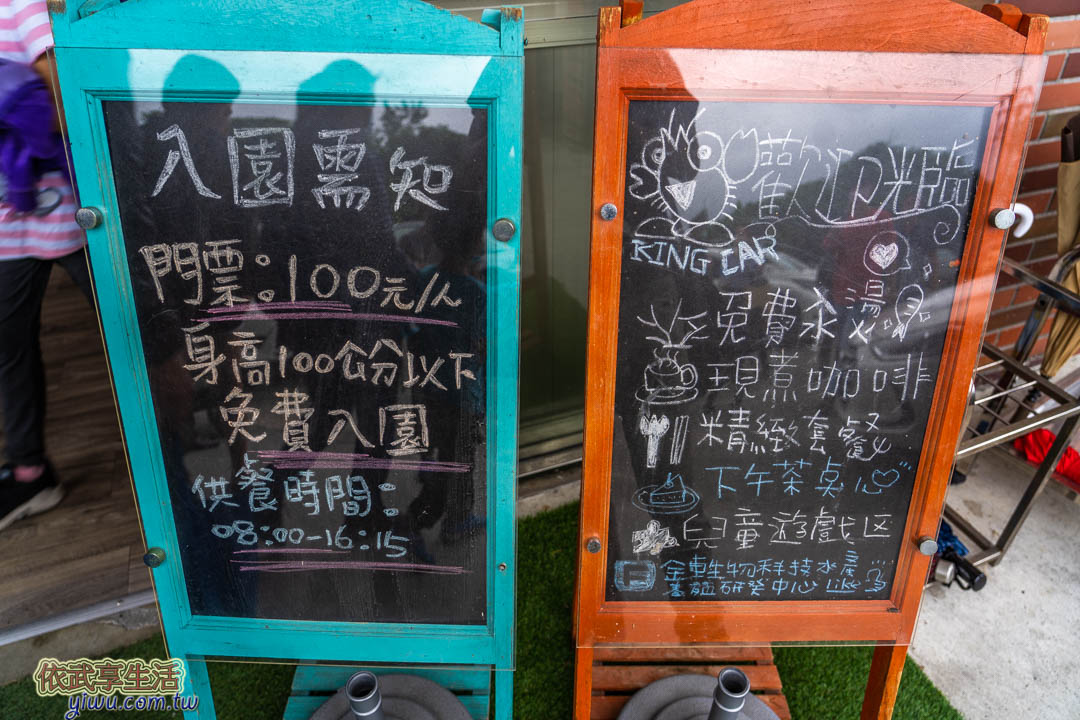 入園需知
門票：100元/人
身高100公分以下
免費入園
供餐時間：
08:00-16:15
歡迎光臨
KING CAR
免費水煲
現煮咖啡
精緻套餐
下午茶桌心
兒童遊戲区
金車生物科技水產
養殖研發中心 Like
依武享生活
yiwu.com.tw